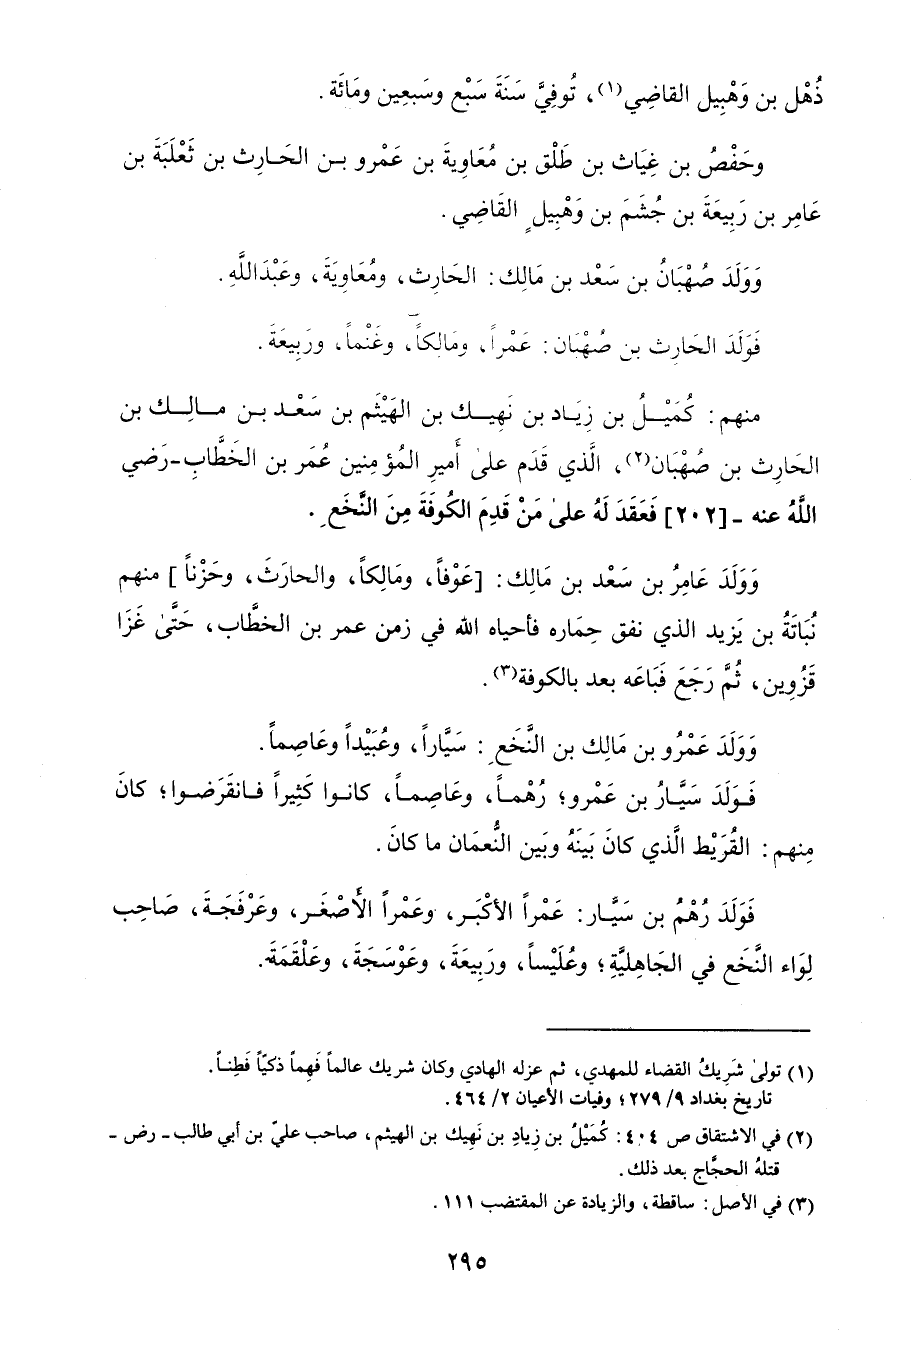 ذُهْل بن وَهْبِيل القاضِي(١)، تُوفِيَّ سَنَةَ سَبْع وسَبعِين ومَائَة .
وحَفْصُ بن غِيَاث بن طَلْق بن مُعَاوِيةَ بن عَمْرو بـن الحَـارِث بن ثَعْلَبَةَ بن
عَامِر بن رَبِيعَةَ بن جُشَمَ بن وَهْبِيلٍ القَاضِي .
وَوَلَدَ صُهْبَانُ بن سَعْد بن مَالِك : الحَارِث، ومُعَاوِيَةَ، وعَبْدَاللَّهِ .
فَوَلَدَ الحَارِث بن صُهْبَان : عَمْراً، ومَالِكاً، وغَنْماً، ورَبِيعَةَ .
منهم : كُمَيْلُ بن زِيَـاد بن نَهِيـك بن الهَيْثَم بن سَعْـد بـن مـالِـك بن
الحَارِث بن صُهْبَان(٢)، الَّذي قَدَم علىٰ أَميرِ المُؤمِنين عُمَر بن الخَطَّابِ-رَضي
اللَّهُ عنه - [٢٠٢] فَعَقَدَ لَهُ علىٰ مَنْ قَدِمَ الكُوفَةَ مِنَ النَّخَعِ .
وَوَلَدَ عَامِرُ بن سَعْد بن مَالِك : [عَوْفاً، ومَالِكاً، والحارَثَ، وحَزْناً] منهم
نُبَاتَةُ بن يَزيد الذي نفق حِمَاره فأحياه الله في زمن عمر بن الخطَّاب، حَتَّىٰ غَزَا
قَزْوِين، ثُمَّ رَجَعَ فَبَاعَه بعد بالكوفة(٣) .
وَوَلَد عَمْرُو بن مَالِك بن النَّخَعِ : سَيَّاراً، وعُبَيْداً وعَاصِماً.
فَـوَلَدَ سَيَّـارُ بن عَمْرو؛ رُهْمـاً، وعَاصِمـاً، كانـوا كَثِيراً فـانقَرَضـوا؛ كانَ
مِنهم : القُرَيْط الَّذي كانَ بَينَهُ وبَين النُّعمَان ما كانَ .
فَوَلَدَ رُهْمُ بن سَيَّـار : عَمْراً الأكْبَـر، وعَمْراً الأَصْغَـر، وعَرْفَجَـةَ، صَاحِب
لِوَاء النَّخَع في الجَاهِليَّةِ؛ وعُلَيْساً، ورَبِيعَةَ، وعَوْسَجَةَ، وعَلْقَمَةَ.
(١) تولىٰ شَرِيكُ القضاء للمهدي، ثم عزله الهادي وكان شريك عالماً فَهِماً ذكيّاً فَطِنـاً.
تاريخ بغداد ٩/ ٢٧٩؛ وفيات الأعيان ٢/ ٤٦٤ .
(٢) في الاشتقاق ص ٤٠٤ : كُمَيْلُ بن زيادِ بن نَهِيك بن الهيثم، صاحب عليّ بن أبي طالب - رض -
قتلهُ الحجَّاج بعد ذلك .
(٣) في الأصل : ساقطة، والزيادة عن المقتضب ١١١ .
٢٩٥